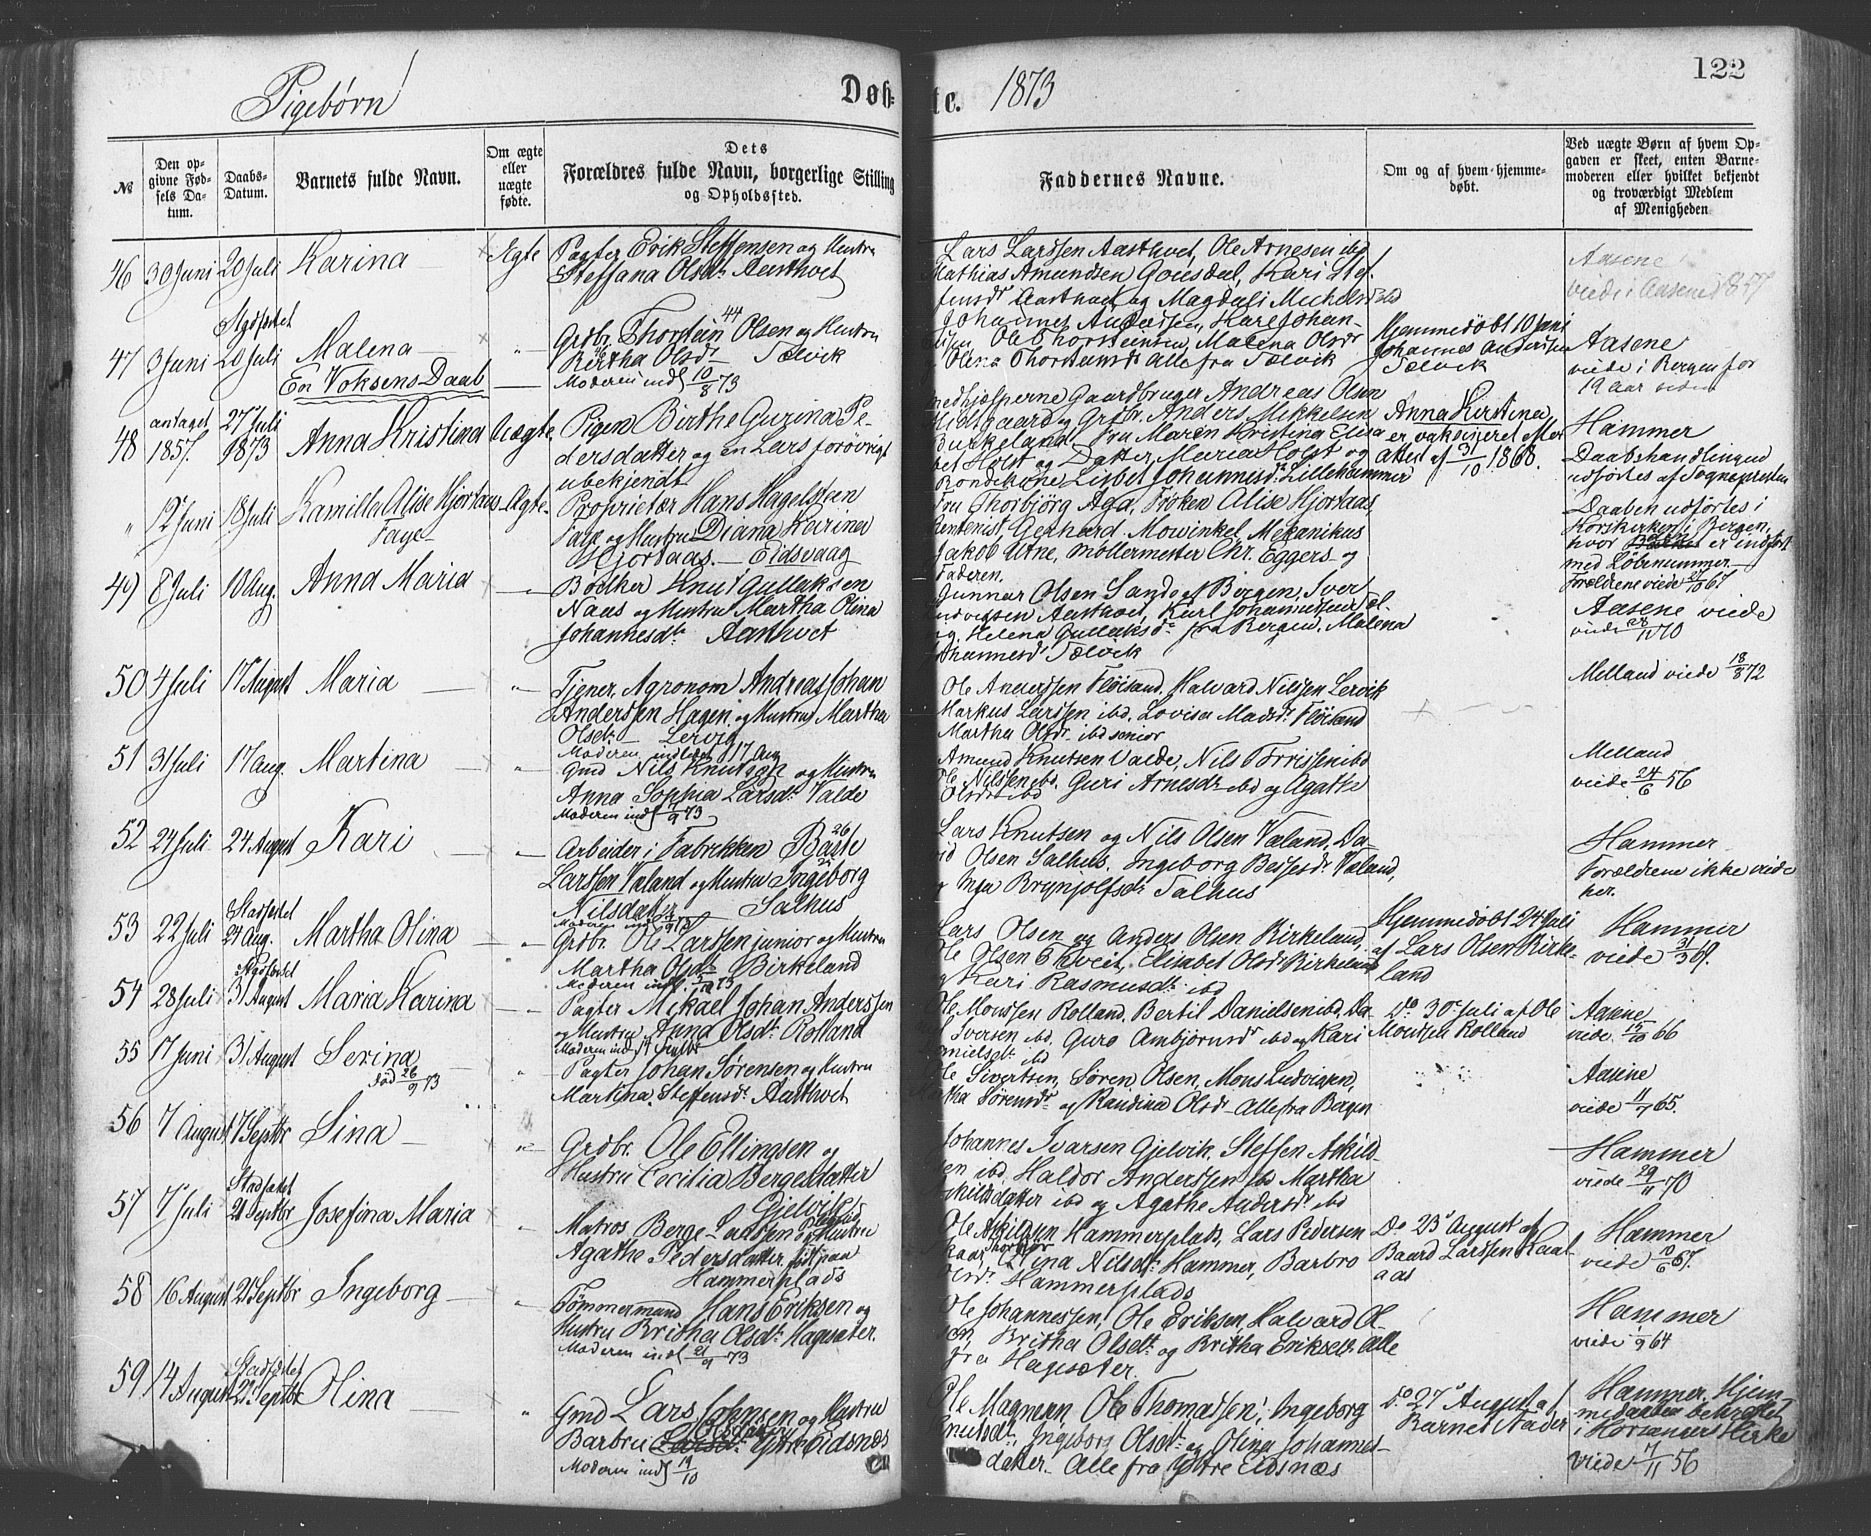 Pigebørn
Døb-
te.
1873
122
№
Den op-
givne Fød-
sels Da-
tum.
Daabs-
Datum.
Barnets fulde Navn.
Om ægte
eller
uægte
fødte.
Dets
Forældres fulde Navn, borgerlige Stilling
og Opholdssted.
Faddernes Navne.
Om og af hvem hjemme-
døbt.
Ved uægte Børn af hvem Op-
gaven er skeet, enten Barne-
moderen eller hvilket bekjendt
og troværdigt Medlem
af Menigheden
46 30 Juni 20 Juli Karina Ægte
Pagter Erik Steffensen og Hustru
Steffana Olsdr Aasthvet
Lars Larssen Aasthvet, Ole Arnesen ibd
Mathias Amundsen Kari Stef-
fensdr Aasthvet og Magduli Michelsd
Aasene
47 3 Juni Stadfæstet 20 Juli Malena "
Grdbr. Thorstein 44 Olsen og Hustru
Birtha Olsdr Tælvik
Moderen indl 10/8 73
Johannes Anderssen, Karl Johan-
Ole Thorsteinsen, Malena Olsdr
Olina Thorsteinsd Alle fra Tælvik
Hjemmedøbt 10 Juni
Johannes Anderssen
Tælvik
Aasene
viede i Bergen for
19 Aar siden
En Voksens Daab
48 antaget 1857. 27 Juli 1873 Anna Kristina Uægte
Pigen Birthe Gurina Pe-
dersdatter og en Lars forøvrigt
ubekjendt
medhjælperne Gaardbruger Andreas Olsen
og Grdbr. Anders Mikkelsen
Birkeland Fru Maren Kristina Elisa
bet Holst og Datter Maria Holst og
Lisbet Johannesdr Lillehammer
Anna Kristina
er vaksineret efter
Attest af 31/10 1868.
Hammer
Daabshandlingen
udførtes af Sognepresten
" 12 Juni 18 Juli Kamilla Alise Hjortaas Faye Ægte
Proprietær Hans Hagelsteen
Faye og Hustru Diana Karina
Hjortaas. Eidsvaag
Fru Thorbjørg Aga, Frøken Alise Hjortaas
Rentenist, Gerhard Mowinkel, Mekanikus
Jakob Utne, Møllermester Chr. Eggers og
Faderen.
Daaben udførtes i
Korskirken i Bergen,
hvor er indført
med Løbenummer
Forældrene viede 27/10 67
49 8 Juli 10 Aug. Anna Maria
Bødker Knut Gullaksen
Naas og Hustru Martha Olina
Johannesdr Aasthvet
Gunnar Olsen Sande af Bergen, Iver
Ludvigssen Aasthvet, Karl Johannessen Tæl-
vig. Helena Gullaksdr fra Bergen. Malena
Johannesd Tælvik
Aasene viede
50 4 Juli 17 August Maria "
Tjener, Agronom Andreas Johan
Anderssen Hagen og Hustru Martha
Olsdr Lervig
Moderen indledet 17 Aug
Ole Anderssen Fløisand, Halvard Nilssen Lervik
Markus Larssen ibd. Lovisa Madsdr Fløisand
Martha Olsdr ibd senior
Melland viede 18/8 72
51 31 Juli 17 Aug. Martina "
Gmd Nils Knutsen og Hustru
Anna Sophia Larsdr Valde
Moderen indl 7/9 73
Amund Knutsen Valde, Nils Torrissen ibd
Ole Nilssen ibd. Guri Arnesdr ibd og Agathe
Olsdr ibd
Melland
viede 24/6 56
52 24 Juli 24 August Kari "
Arbeider i Fabrikken Baste 26
Larssen Væland og Hustru Ingeborg
Nilsdatter Salhus
Lars Knutsen og Nils Olsen Væland, Da-
vid Olsen Salhus. Ingeborg Væland,
og Inga Brynjolfsdr Salhus
Hammer
Forældrene ikke viede
her.
53 22 Juli Stadfæstet 24 Aug. Martha Olina "
Grdbr. Ole Larssen junior og Hustru
Martha Olsdr Birkeland
Lars Olsen og Anders Olsen Birkeland,
Ole Olsen Elisabet Olsdr Birkeland
og Kari Rasmusdr ibd
Hjemmedøbt 24 Juli
af Lars Olsen Birke-
land
Hammer
viede 31/3 69.
54 28 Juli Stadfæstet 31 August Maria Karina
Pagter Mikael Johan Anderssen
og Hustru Anna Olsdr Rolland
Ole Monssen Rolland. Bertil Danielsen ibd, Da-
Iversen ibd, Guro Ambjørnsdr ibd og Kari
Danielsdr ibd
Do 30 Juli af Ole
Monssen Rolland
Aasene
viede 66
55 17 Juni 31 August Serina død 26/9 73
Pagter Johan Sørensen og Hustru
Martina Steffensdr Aasthvet
Ole Sivertsen, Søren Olsen, Mons Ludvigsen,
Martha Sørensdr og Randina Olsdr Alle fra Bergen
Aasene
viede 11/7 65.
56 7 August 7 Septbr Sina "
Grdbr. Ole Ellingsen og
Hustru Cecilia Bergesdatter
Gjelvik
Johannes Ivarsen Gjelvik. Steffen Askild-
sen ibd. Haldor Anderssen ibd Martha
Askildsdatter ibd og Agathe Andersdr ibd
Hammer
viede 29/11 70
57 7 Juli Stadfæstet 21 Septbr Josefina Maria "
Matros Berge Larssen og Hustru
Agathe Pedersdatter,
Hammerplads
Ole Askildsen Hammerplads, Lars Pedersen
Olina Nilsdr Hammer, Barbro
Olsdr Hammerplads
Do 23 August af
Baard Larssen
Hammer
viede 10/6 67.
58 16 August 21 Septbr Ingeborg "
Tømmermand Hans Eriksen og
Hustru Britha Olsdr Hagesæter.
Moderen indl 21/9 73
Ole Johannessen, Ole Eriksen, Halvard Ol-
sen, Britha Olsdr og Britha Eriksdr Alle
fra Hagesæter.
Hammer
viede 64
59 14 August Stadfæstet 21 Septbr Olina "
Gmd Lars Johnsen og Hustru
Barbru Ytre Eidsnæs
Moderen indl 19/10
Ole Magman, Ole Thomassen, Ingeborg
Knutsdr, Ingeborg Olsdr og Olina Johannes-
datter. Alle fra Ytre Eidsnæs
Do 27 August af
Barnets Fader
Hammer. Hjem-
medaaben bekræftet
i Hosangers Kirke
viede 7/11 56